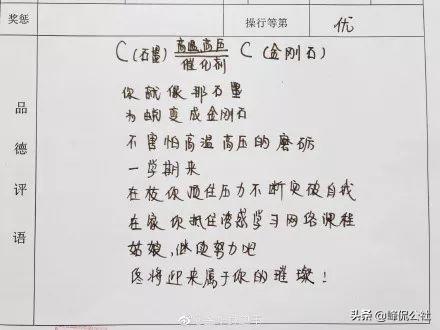 奖惩 操行等第 优
C(石墨) 高温,高压 催化剂 C(金刚石)
你就像那石墨
为蜕变成金刚石
不害怕高温高压的磨砺
一学期来
在校你顶住压力不断突破自我
在家你抵住诱惑学习网络课程
姑娘,继续努力吧
终将迎来属于你的璀璨!
品德评语
头条@峰侃公社